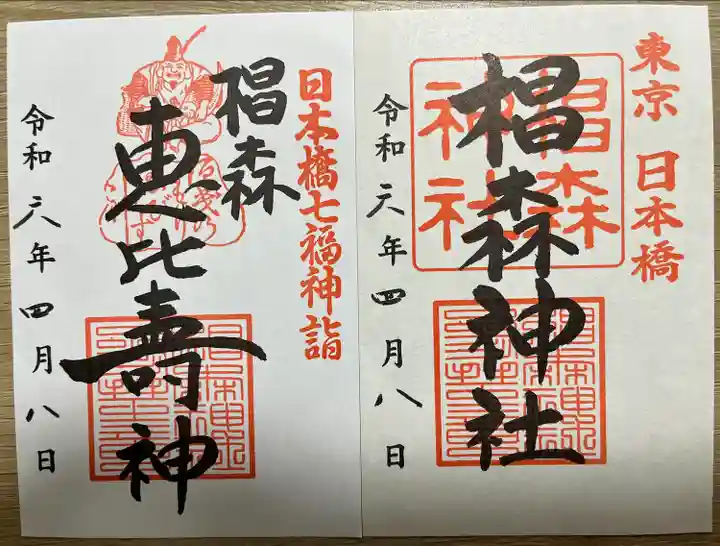 日本橋七福神詣
椙森
恵比寿神
令和六年四月八日
東京 日本橋
椙森神社
椙森神社
令和六年四月八日